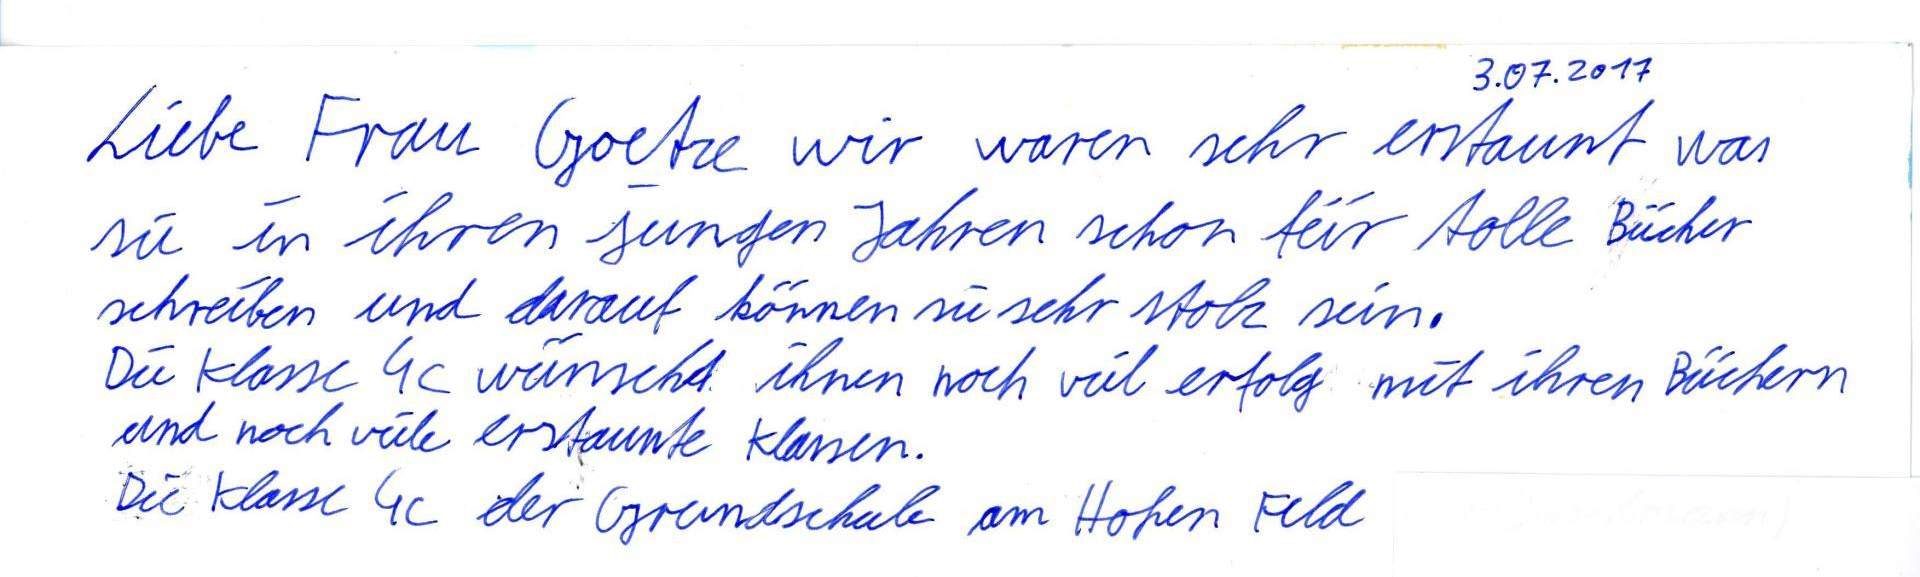 3.07.2017
Liebe Frau Goetze wir waren sehr erstaunt was
sie in ihren jungen Jahren schon für tolle Bücher
schreiben und darauf können sie sehr stolz sein.
Die Klasse 4c wünscht ihnen noch viel erfolg mit ihren Büchern
und noch viele erstaunte Klassen.
Die Klasse 4c der Grundschule am Hohen Feld